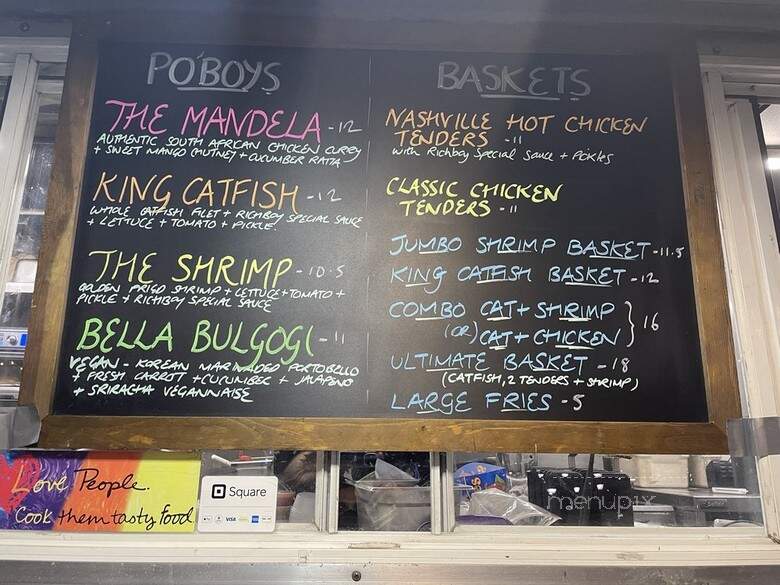 PO'BOYS
THE MANDELA - 12
AUTHENTIC SOUTH AFRICAN CHICKEN CURRY
+ SWEET MANGO CHUTNEY + CUCUMBER RAITA
KING CATFISH - 12
WHOLE CATFISH FILET + RICHBOY SPECIAL SAUCE
+ LETTUCE + TOMATO + PICKLE
THE SHRIMP - 10.5
GOLDEN FRIED SHRIMP + LETTUCE + TOMATO +
PICKLE + RICHBOY SPECIAL SAUCE
BELLA BULGOGI - 11
VEGAN - KOREAN MARINADED PORTOBELLO
+ FRESH CARROT + CUCUMBER + JALAPENO
+ SRIRACHA VEGANNAISE
BASKETS
NASHVILLE HOT CHICKEN
TENDERS - 11
with Richboy Special Sauce + Pickles
CLASSIC CHICKEN
TENDERS - 11
JUMBO SHRIMP BASKET - 11.5
KING CATFISH BASKET - 12
COMBO CAT + SHRIMP
(OR) CAT + CHICKEN } 16
ULTIMATE BASKET - 18
(CATFISH, 2 TENDERS + SHRIMP)
LARGE FRIES - 5
Love People.
Cook them tasty food
Square
VISA
menupix